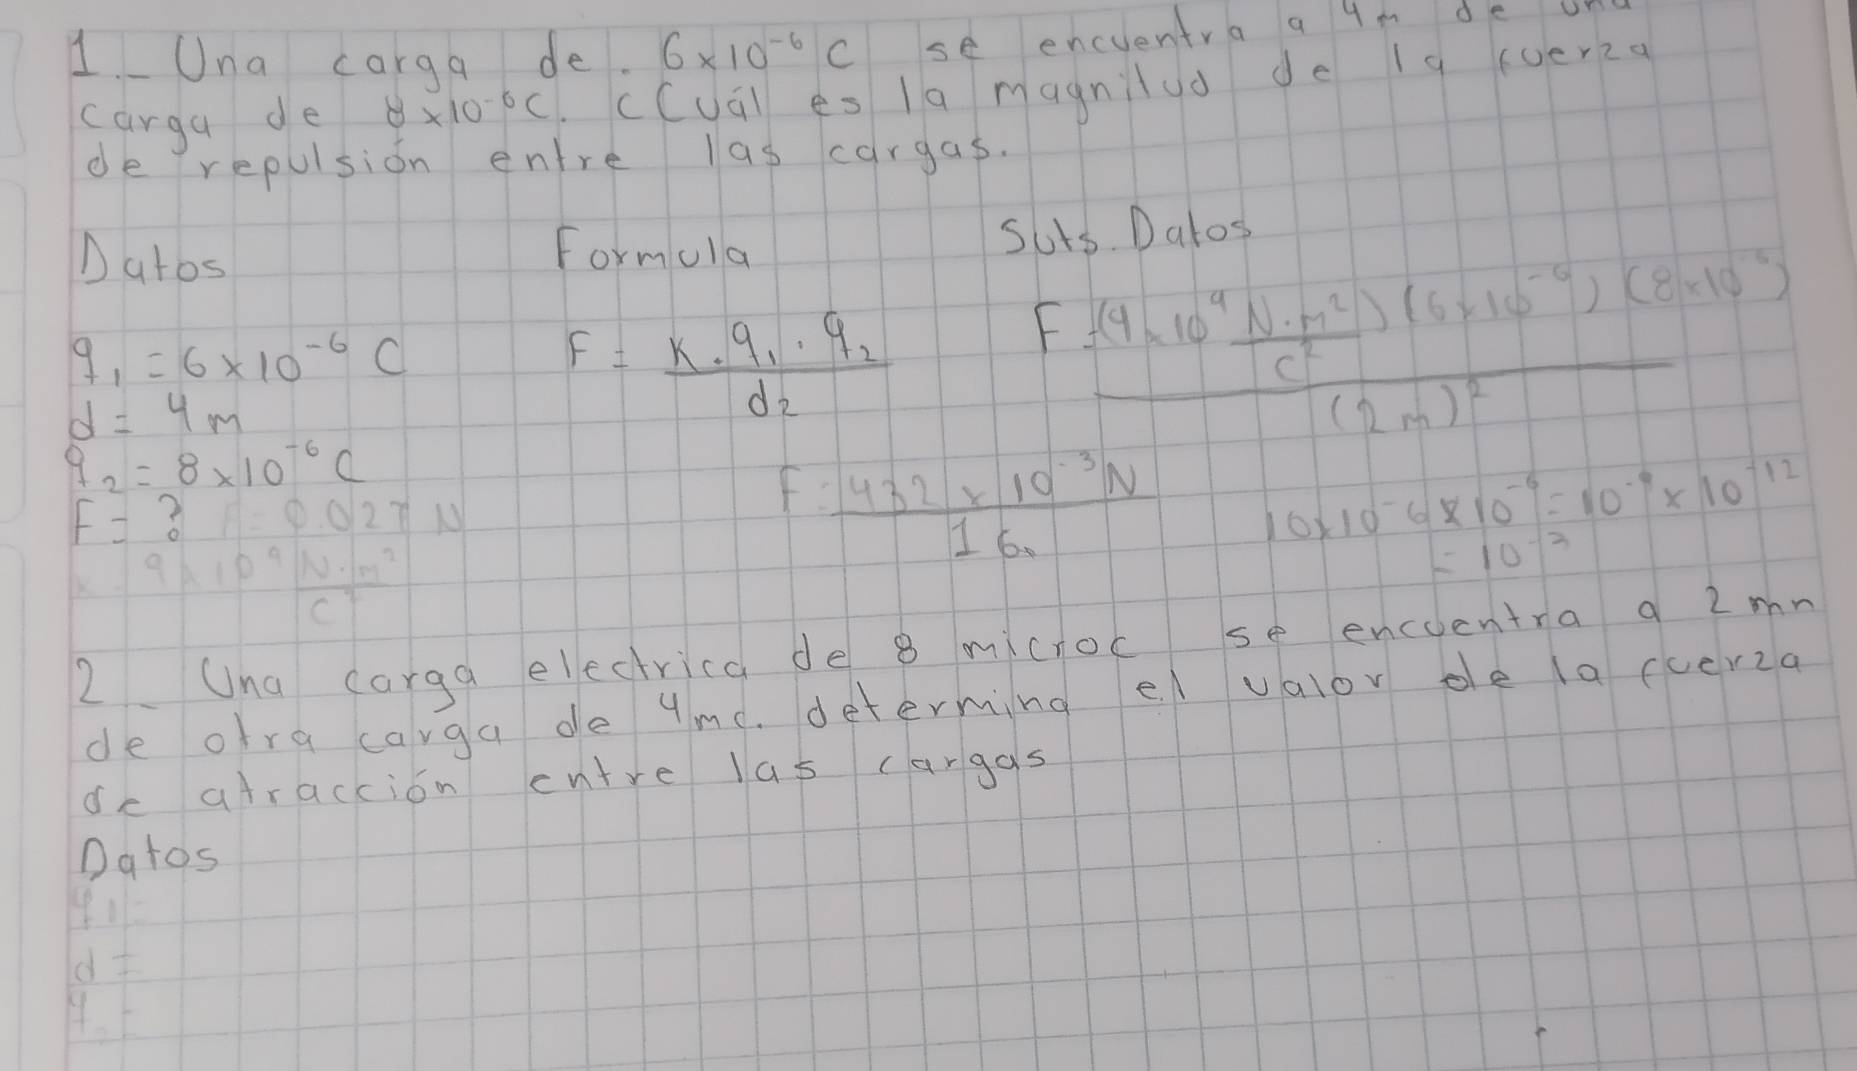 1.- Una carga de. 6x10⁻⁶ C se encuentra a 4m de una
carga de 8x10⁻⁶C. ¿Cuál es la magnitud de la fuerza
de repulsión entre las cargas.
Datos Formula Suts. Datos
q₁ = 6x10⁻⁶ C
d = 4m
q₂ = 8x10⁻⁶ C
F = ? F = 0.027 N
9x10⁹ N.m²
C²
F = K.q₁.q₂
d₂
F = (9x10⁹ N.m²) (6x10⁻⁶) (8x10⁻⁶)
C²
(2m)²
F = 432 x 10⁻³ N
16
= 10⁻³
2_ Una carga electrica de 8 microc se encuentra a 2mn
de otra carga de 4mc. determina el valor de la fuerza
de atracción entre las cargas
Datos
q₁ =
d =